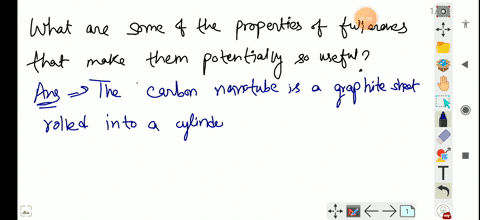 What are some of the properties of fullerenes
that make them potentially so useful?
Ans ⇒ The carbon nanotube is a graphite sheet
rolled into a cylinde